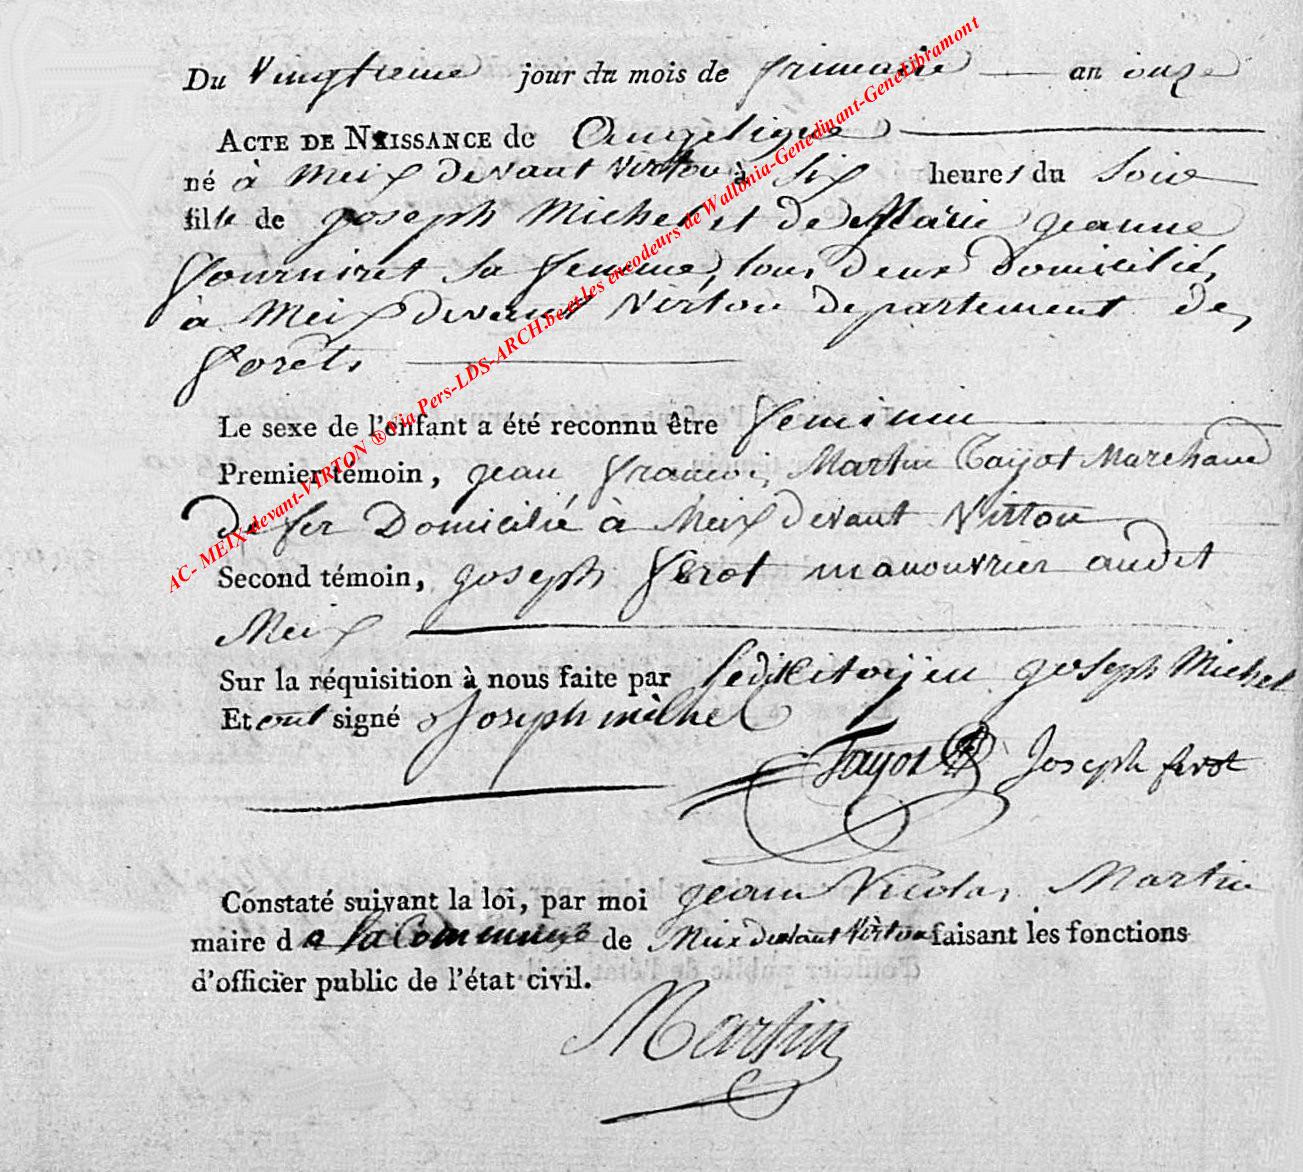 Du Vingtieme jour du mois de frimaire an onze
ACTE DE NAISSANCE de Angelique
né à Meix devant Virton à Six heures du Soire
fille de joseph Michel et de Marie jeanne
fourniret sa femme, tous deux Domiciliés
à Meix devant Virton departement des
forêts
Le sexe de l'enfant a été reconnu être feminin
Premier témoin, jean francois Martin Tayot Marchand
de fer Domicilié à Meix devant Virton
Second témoin, joseph ferot manouvrier audit
Meix
Sur la réquisition à nous faite par Ledit Citoyen joseph Michel
Et ont signé Joseph michel
Tayot Joseph ferot
Constaté suivant la loi, par moi jean Nicolas Martin
maire de la Commune de Meix devant Virton faisant les fonctions
d'officier public de l'état civil.
Martin
AC- MEIX-devant-VIRTON ® Via Pers-LDS-ARCH.be et les encodeurs de Wallonia-Genedinant-GeneLibramont